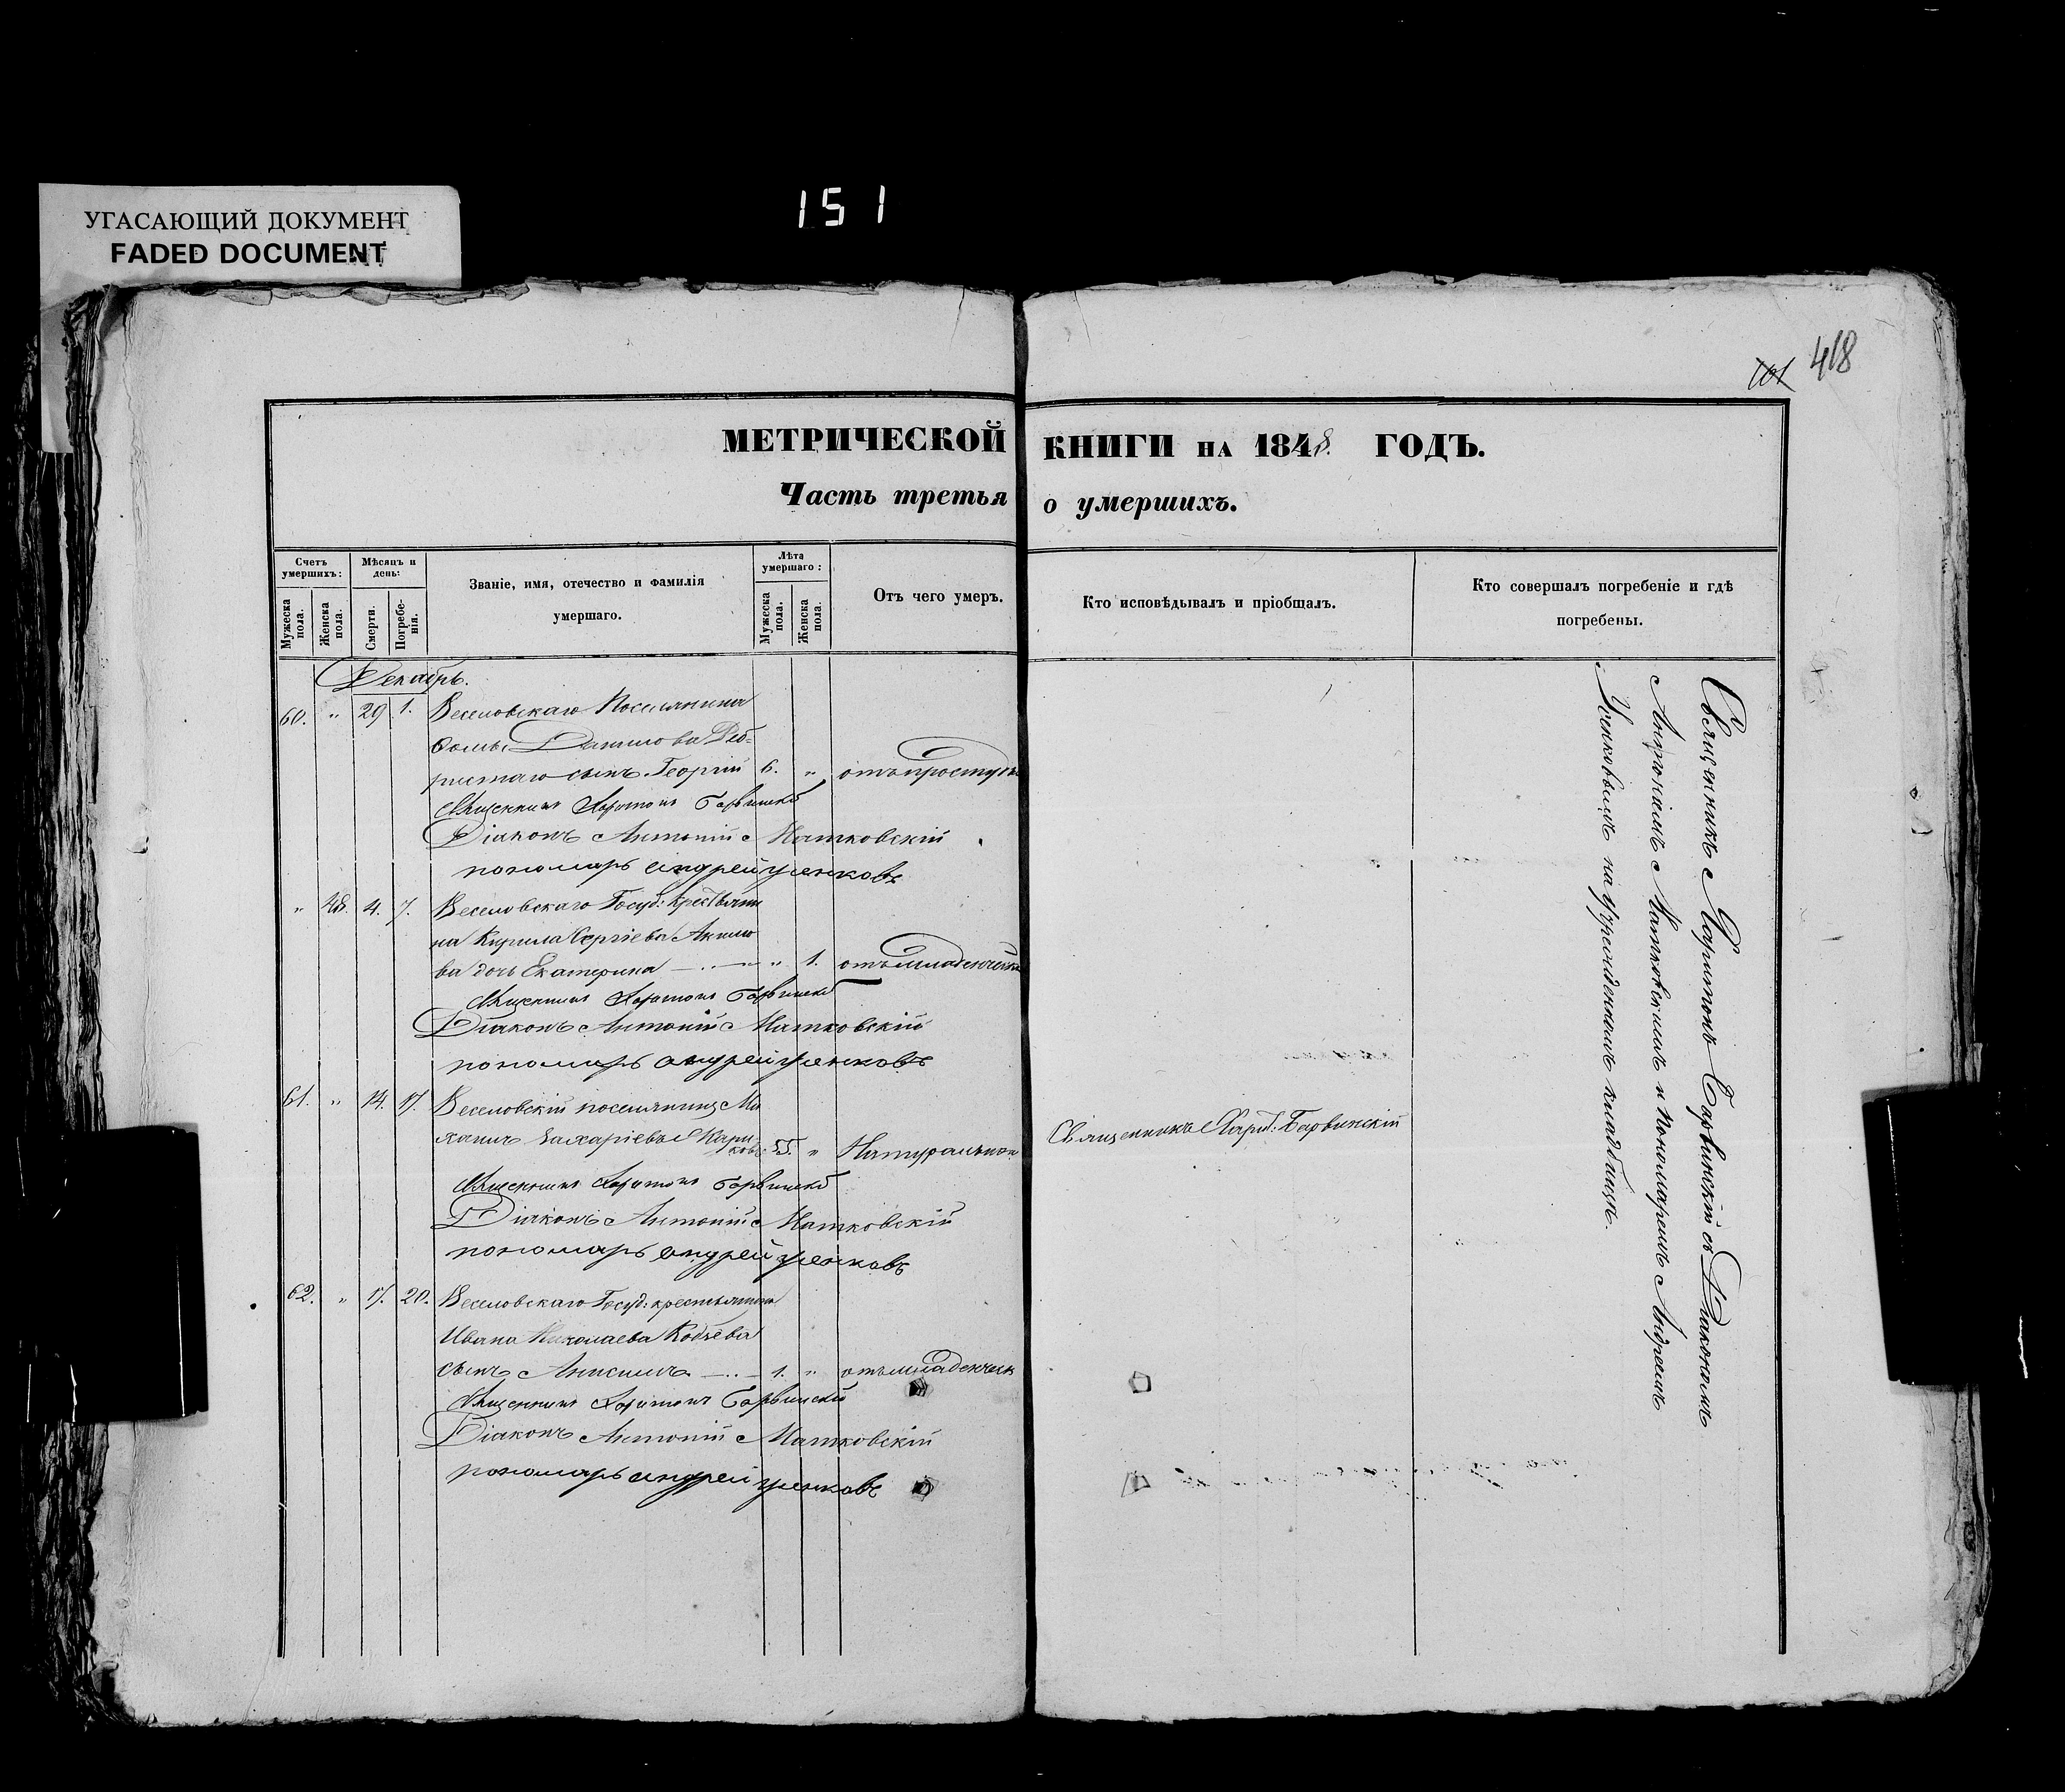 151
УГАСАЮЩИЙ ДОКУМЕНТ
FADED DOCUMENT
101 418
МЕТРИЧЕСКОЙ КНИГИ НА 1848. ГОДЪ.
Часть третья о умершихъ.
Счетъ умершихъ:
Мужеска пола.
Женска пола.
Мѣсяцъ и день:
Смерти.
Погребенія.
Званіе, имя, отечество и фамилія
умершаго.
Лѣта умершаго:
Мужеска пола.
Женска пола.
Отъ чего умеръ.
Кто исповѣдывалъ и пріобщалъ.
Кто совершалъ погребеніе и гдѣ
погребены.
Декабрь.
60. " 29 1. Веселовскаго Поселянина
Фомы Данилова
сынъ Георгій 6. " отъ простуды
Священникъ Харитонъ Барвинскій
Діаконъ Антоній Матковскій
пономарь андрей усенковъ
" 48. 4. 7. Веселовскаго Госуд: Крестьяни
на Кирила Сергіева Акимо
ва дочь Екатерина " 1. отъ младенческ
Священникъ Харитонъ Барвинскій
Діаконъ Антоній Матковскій
пономарь андрей усенковъ
61. " 14. 17. Веселовскій поселянинъ Ми
хаилъ Захаріевъ 55. " Натуральной
Священникъ Харит: Барвинскій
Священникъ Харитонъ Барвинскій
Діаконъ Антоній Матковскій
пономарь андрей усенковъ
62. " 17. 20. Веселовскаго Госуд: крестьянина
Ивана Николаева
сынъ Анисимъ 1. " отъ младенческ
Священникъ Харитонъ Барвинскій
Діаконъ Антоній Матковскій
пономарь андрей усенковъ
Священникъ Харитонъ Барвинскій съ Діакономъ
Антоніемъ Матковскимъ и пономаремъ Андреемъ
Усенковымъ на учрежденномъ кладбищѣ.